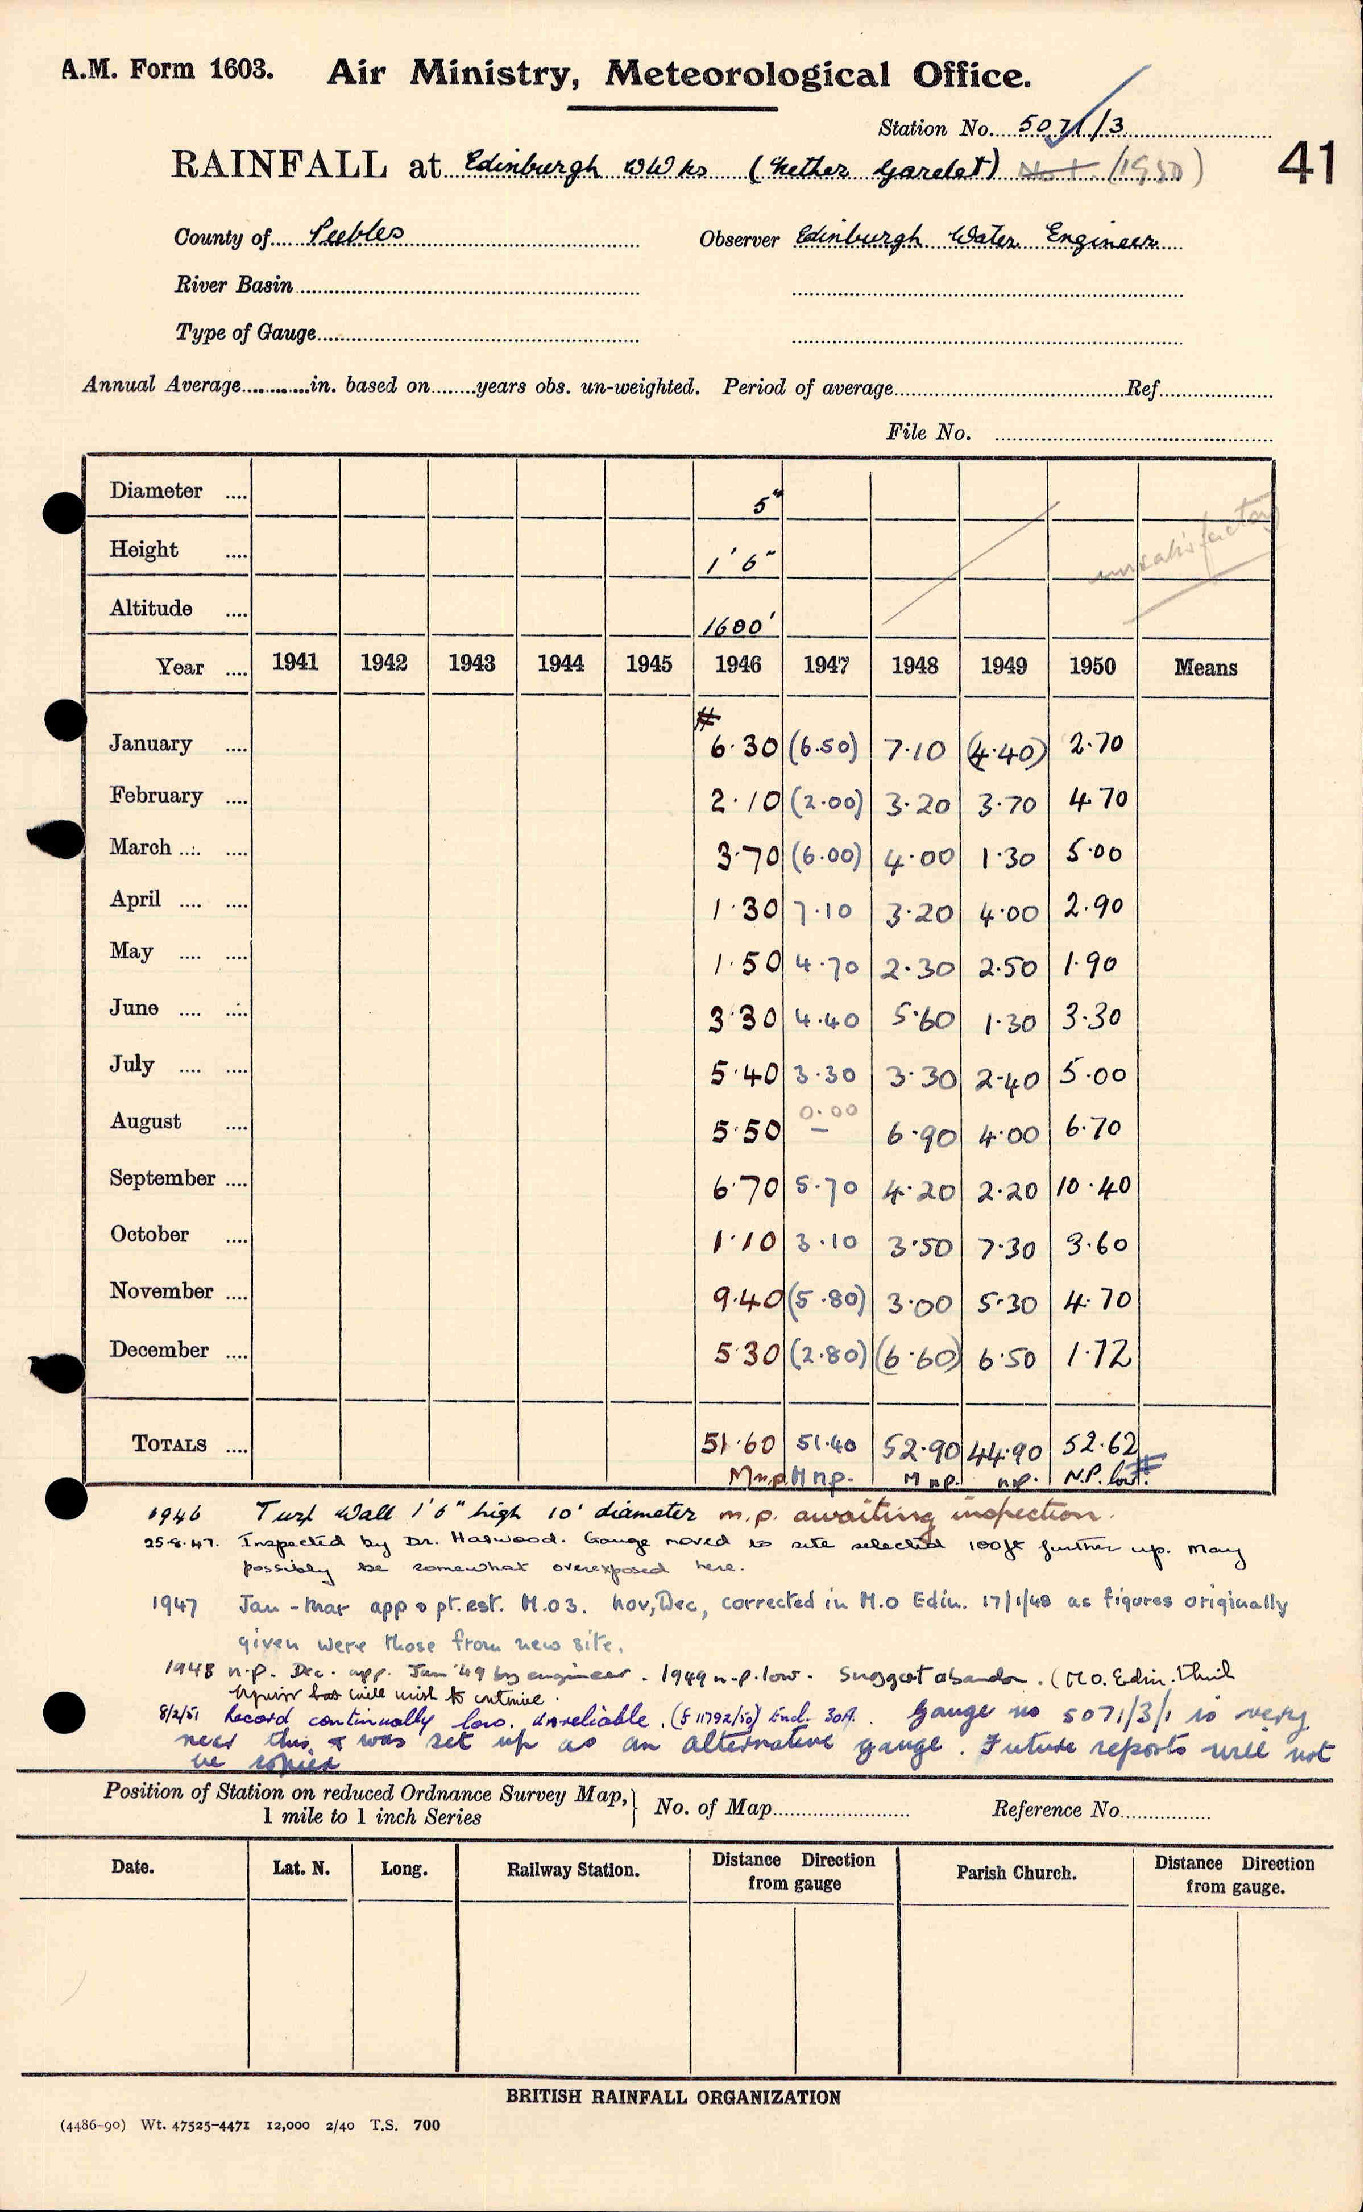 A.M. Form 1603. Air Ministry, Meteorological Office.
Station No. 5071/3
RAINFALL at Edinburgh WWks (Nether Garelet) No 1. (1950) 41
County of Peebles Observer Edinburgh Water Engineer
River Basin
Type of Gauge
Annual Average in. based on years obs. un-weighted. Period of average Ref
File No.
Diameter 5"
unsatisfactory
Height 1' 6"
Altitude 1600'
Year 1941 1942 1943 1944 1945 1946 1947 1948 1949 1950 Means
#
January 6.30 (6.50) 7.10 (4.40) 2.70
February 2.10 (2.00) 3.20 3.70 4.70
March 3.70 (6.00) 4.00 1.30 5.00
April 1.30 7.10 3.20 4.00 2.90
May 1.50 4.70 2.30 2.50 1.90
June 3.30 4.40 5.60 1.30 3.30
July 5.40 3.30 3.30 2.40 5.00
0.00
August 5.50 – 6.90 4.00 6.70
September 6.70 5.70 4.20 2.20 10.40
October 1.10 3.10 3.50 7.30 3.60
November 9.40 (5.80) 3.00 5.30 4.70
December 5.30 (2.80) (6.60) 6.50 1.72
TOTALS 51.60 51.40 52.90 44.90 52.62
M n.p. M n.p. M n.p. n.p. N.P. low. #
1946 Turf Wall 1'6" high 10' diameter n.p. awaiting inspection.
25.8.47. Inspected by Dr. Harwood. Gauge moved to site selected 100ft further up. May
possibly be somewhat overexposed here.
1947 Jan-Mar app & pt. est. M.O3. Nov, Dec, corrected in M.O Edin. 17/1/48 as figures originally
given were those from new site.
1948 n.p. Dec. app. Jan '49 by engineer. 1949 n.p. low. Suggest abandon. (M.O. Edin. think
will wish to continue.
8/2/51 Record continually low. Unreliable. (S 11792/50) Encl. 30A. Gauge no 5071/3/1 is very
near this & was set up as an alternative gauge. Future reports will not
be copied
Position of Station on reduced Ordnance Survey Map, 1 mile to 1 inch Series } No. of Map Reference No
Date. Lat. N. Long. Railway Station. Distance Direction from gauge Parish Church. Distance Direction from gauge.
BRITISH RAINFALL ORGANIZATION
(4486-90) Wt. 47525-4471 12,000 2/40 T.S. 700